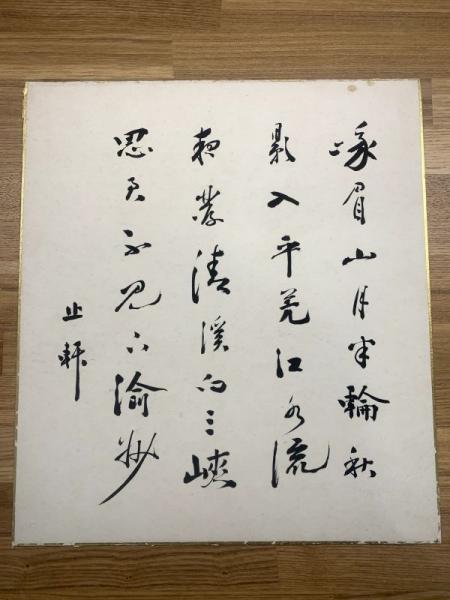 峨眉山月半輪秋
影入平羌江水流
夜發清溪向三峡
思君不見下渝州
止軒